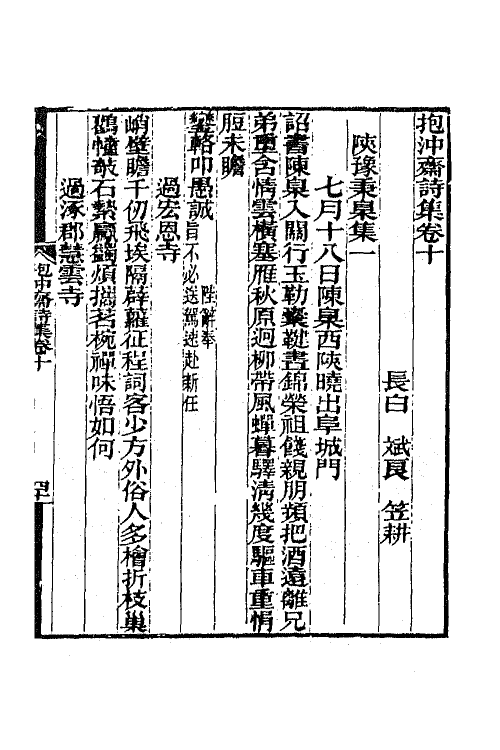 抱沖齋詩集卷十
長白　斌良　笠耕
陝豫秉臬集一
七月十八日陳臬西陝曉出阜城門
詔書陳臬入關行玉勒櫜鞬晝錦榮祖餞親朋頻把酒遠離兄
弟重含情雲橫塞雁秋原迥柳帶風蟬暮驛淸幾度驅車重悁
脰未瞻
鑾輅叩愚誠陛辭奉旨不必送駕速赴新任
過宏恩寺
峭壁瞻千仞飛埃隔辟蘿征程詞客少方外俗人多檜折枝巢
鶴幢欹石縶鼉蠲煩擕茗椀禪味悟如何
過涿郡慧雲寺
抱沖齋詩集卷十